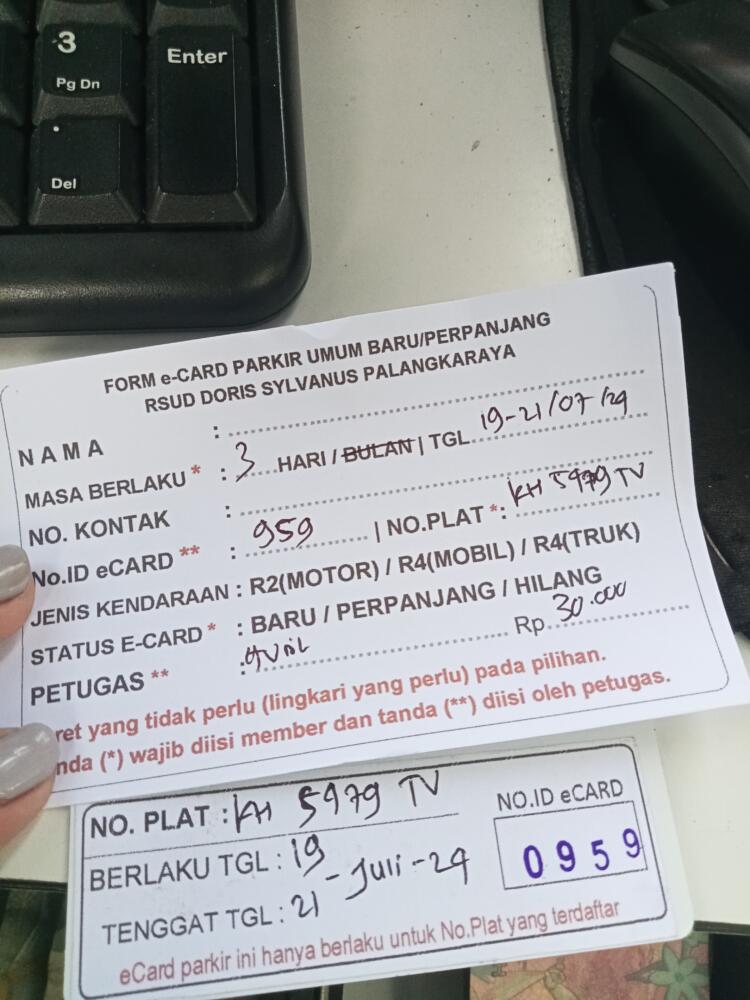 3
Pg Dn
Enter
.
Del
FORM e-CARD PARKIR UMUM BARU/PERPANJANG
RSUD DORIS SYLVANUS PALANGKARAYA
NAMA :
MASA BERLAKU * : 3 HARI / BULAN | TGL 19-21/07/24
NO. KONTAK :
No.ID eCARD ** : 959 | NO.PLAT *: KH 5979 TV
JENIS KENDARAAN : R2(MOTOR) / R4(MOBIL) / R4(TRUK)
STATUS E-CARD * : BARU / PERPANJANG / HILANG
PETUGAS ** : Rp. 30.000
ret yang tidak perlu (lingkari yang perlu) pada pilihan.
nda (*) wajib diisi member dan tanda (**) diisi oleh petugas.
NO. PLAT : KH 5979 TV
NO.ID eCARD
BERLAKU TGL : 19
0959
- Juli - 24
TENGGAT TGL : 21
eCard parkir ini hanya berlaku untuk No.Plat yang terdaftar